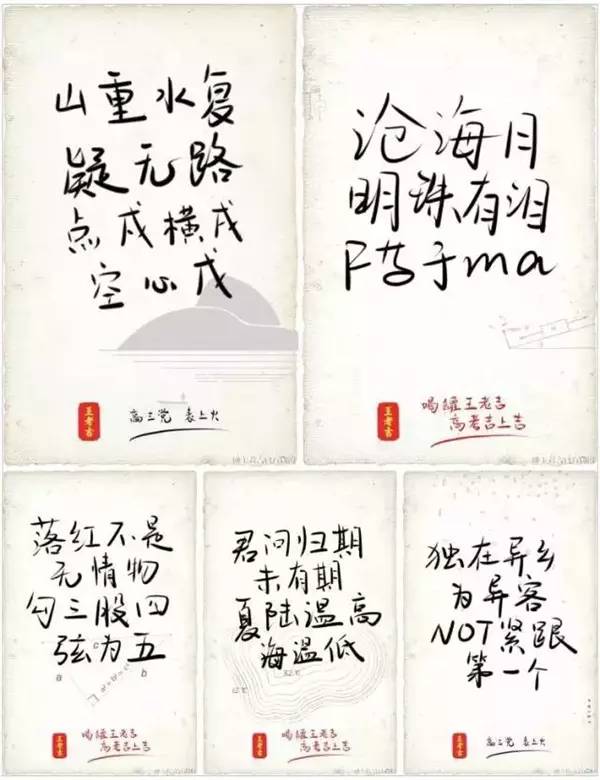 山重水复
疑无路
点戍横戌
空心戊
王老吉
高三党 上火
沧海月
明珠有泪
F等于ma
喝罐王老吉
高考吉上吉
落红不是
无情物
勾三股四
弦为五
a
b
王老吉
喝罐王老吉
高考吉上吉
君问归期
未有期
夏陆温高
海温低
王老吉
喝罐王老吉
高考吉上吉
独在异乡
为异客
NOT紧跟
第一个
王老吉
高三党 上火